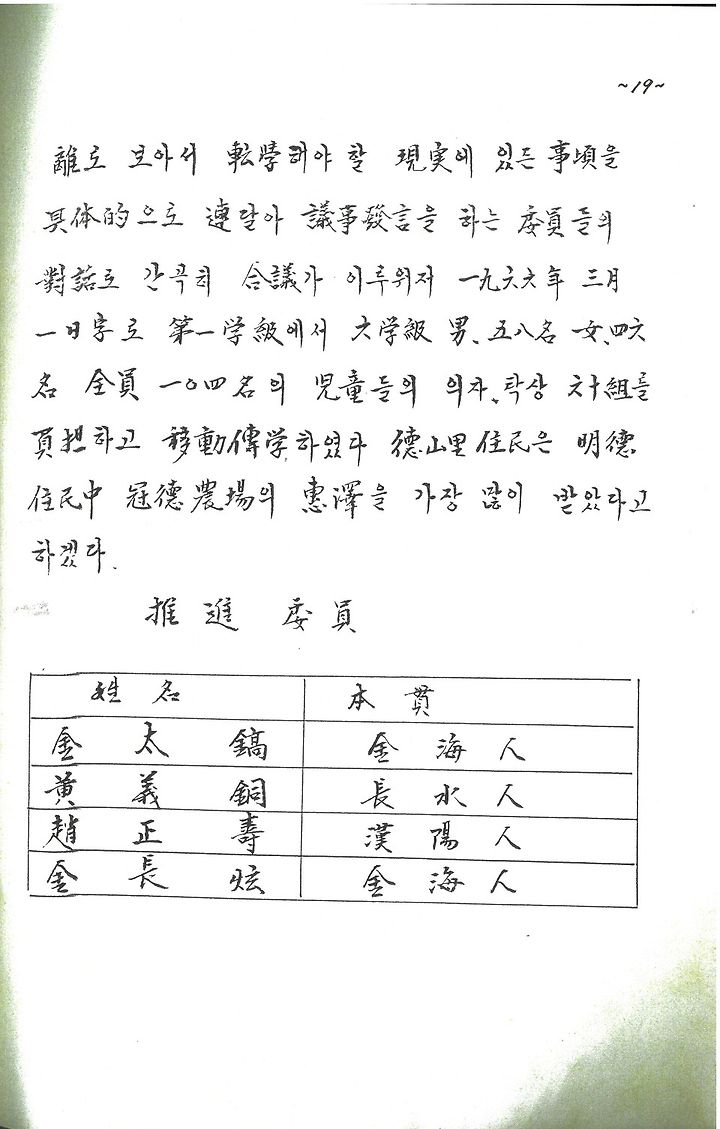 ~19~
離로 보아서 転学해야 할 現実에 있든 事項을
具体的으로 連달아 議事發言을 하는 委員들의
對話로 간곡히 合議가 이루워저 一九六六年 三月
一日字로 第一学級에서 六学級 男、五八名 女、四六
名 全員 一〇四名의 児童들의 의자、탁상 六十組를
負担하고 移動傳学、하였다 德山里住民은 明德
住民中 冠德農場의 惠澤을 가장 많이 받았다고
하겠다.
推進 委員
姓名 本貫
金太鎬 金海人
黄義銅 長水人
趙正壽 漢陽人
金長炫 金海人